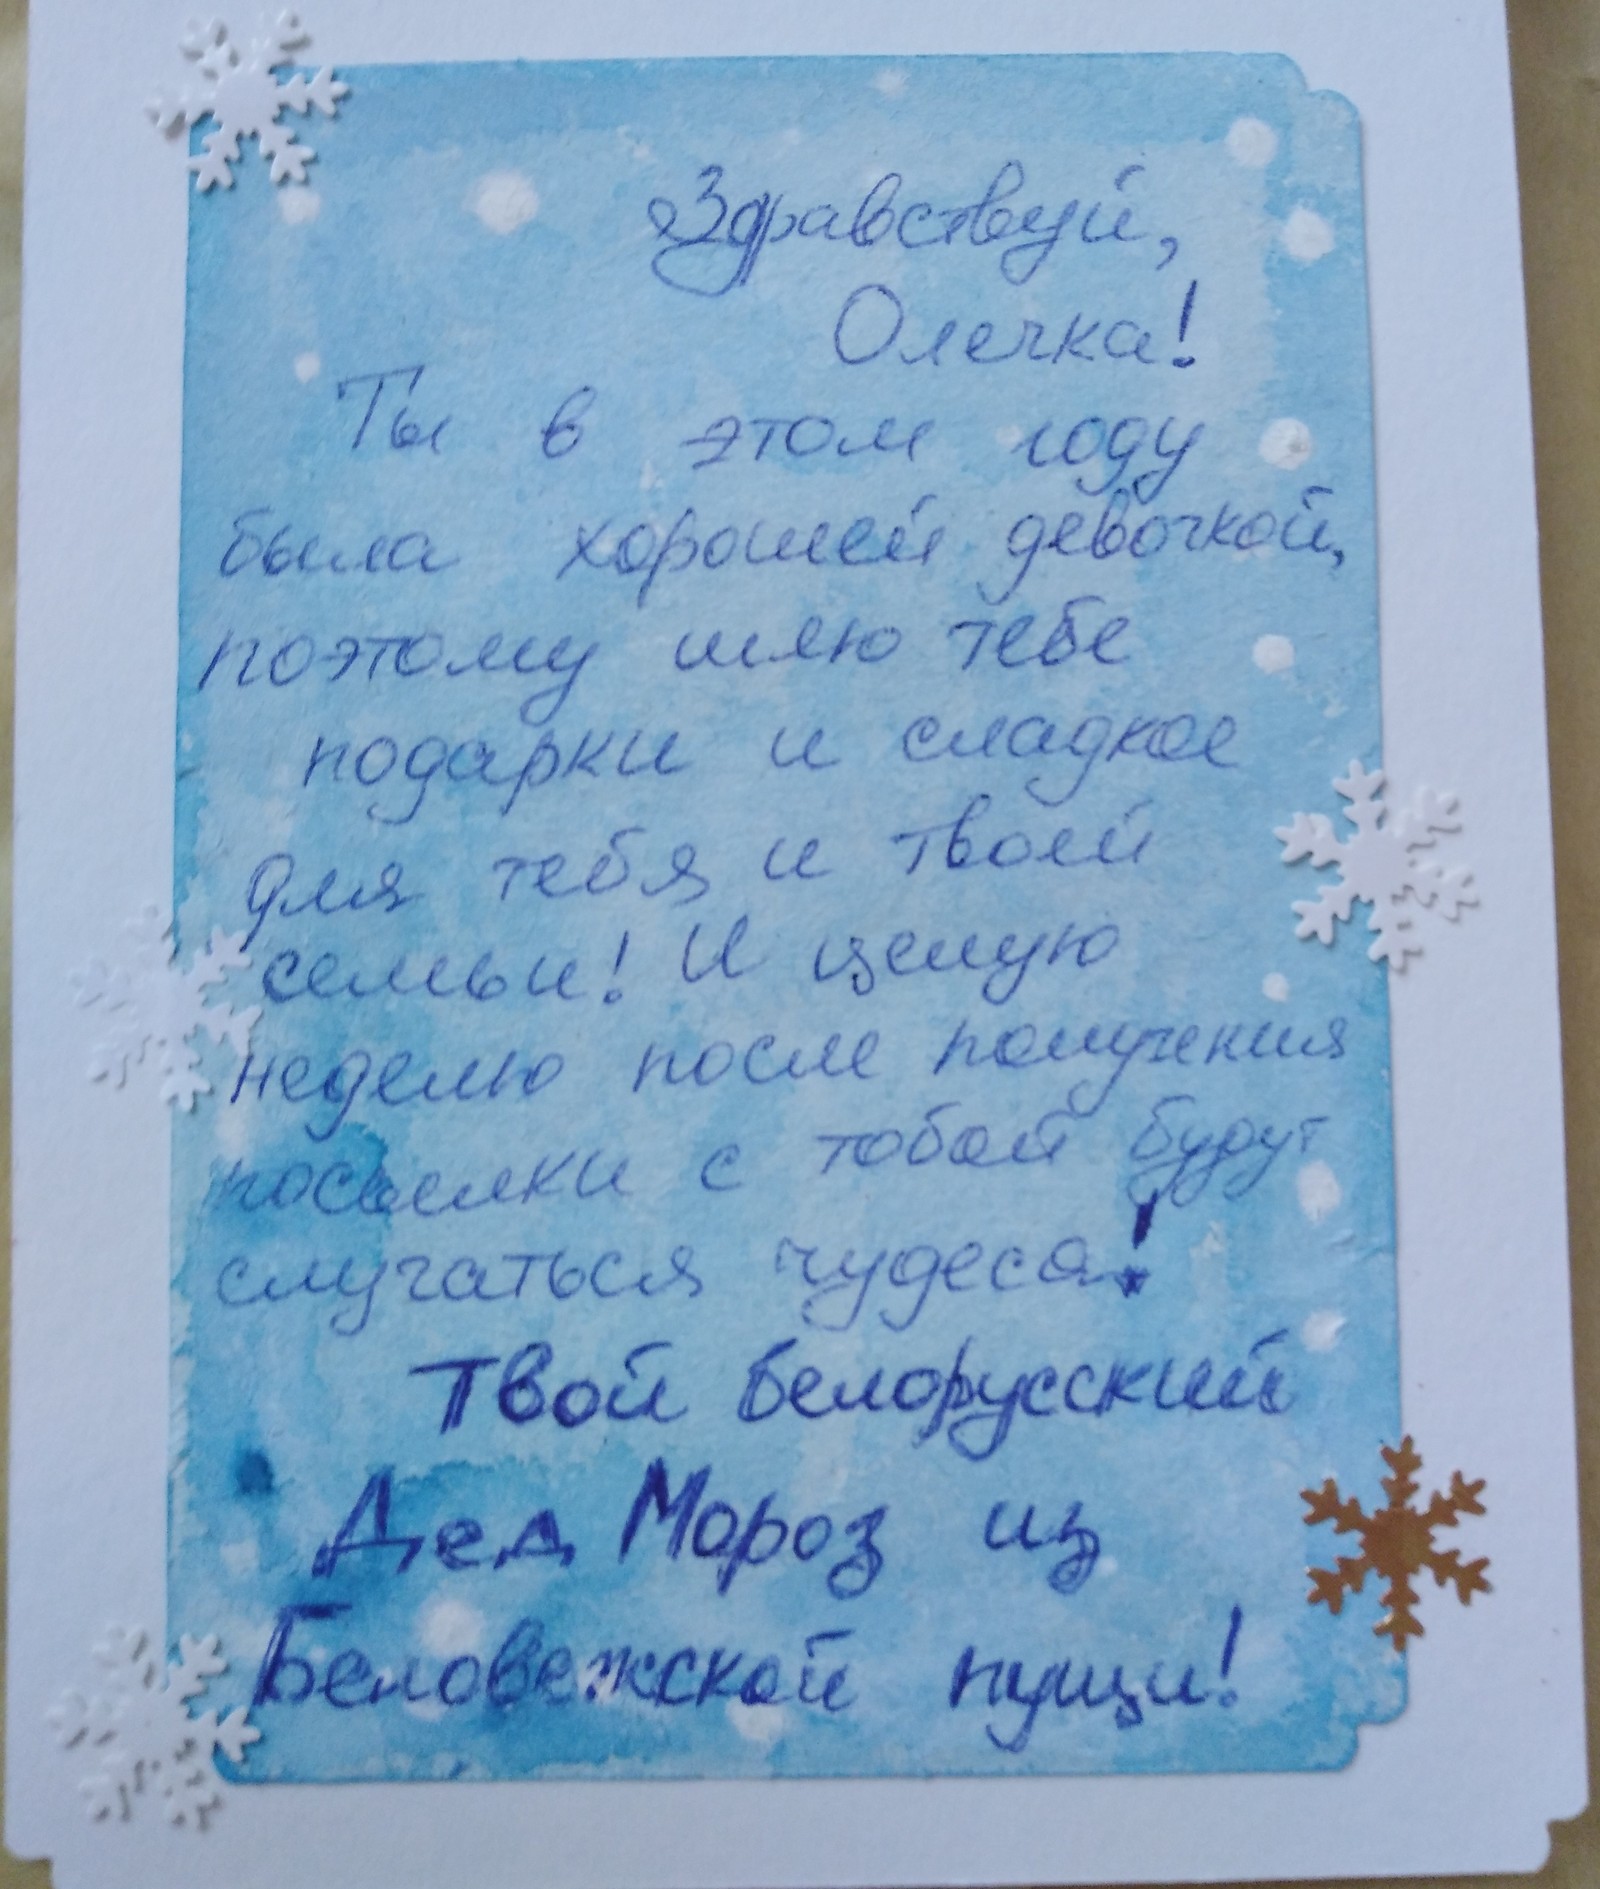 Здравствуй,
Олечка!
Ты в этом году
была хорошей девочкой,
поэтому шлю тебе
подарки и сладкое
для тебя и твоей
семьи! И целую
неделю после получения
посылки с тобой будут
случаться чудеса!
Твой белорусский
Дед Мороз из
Беловежской пущи!